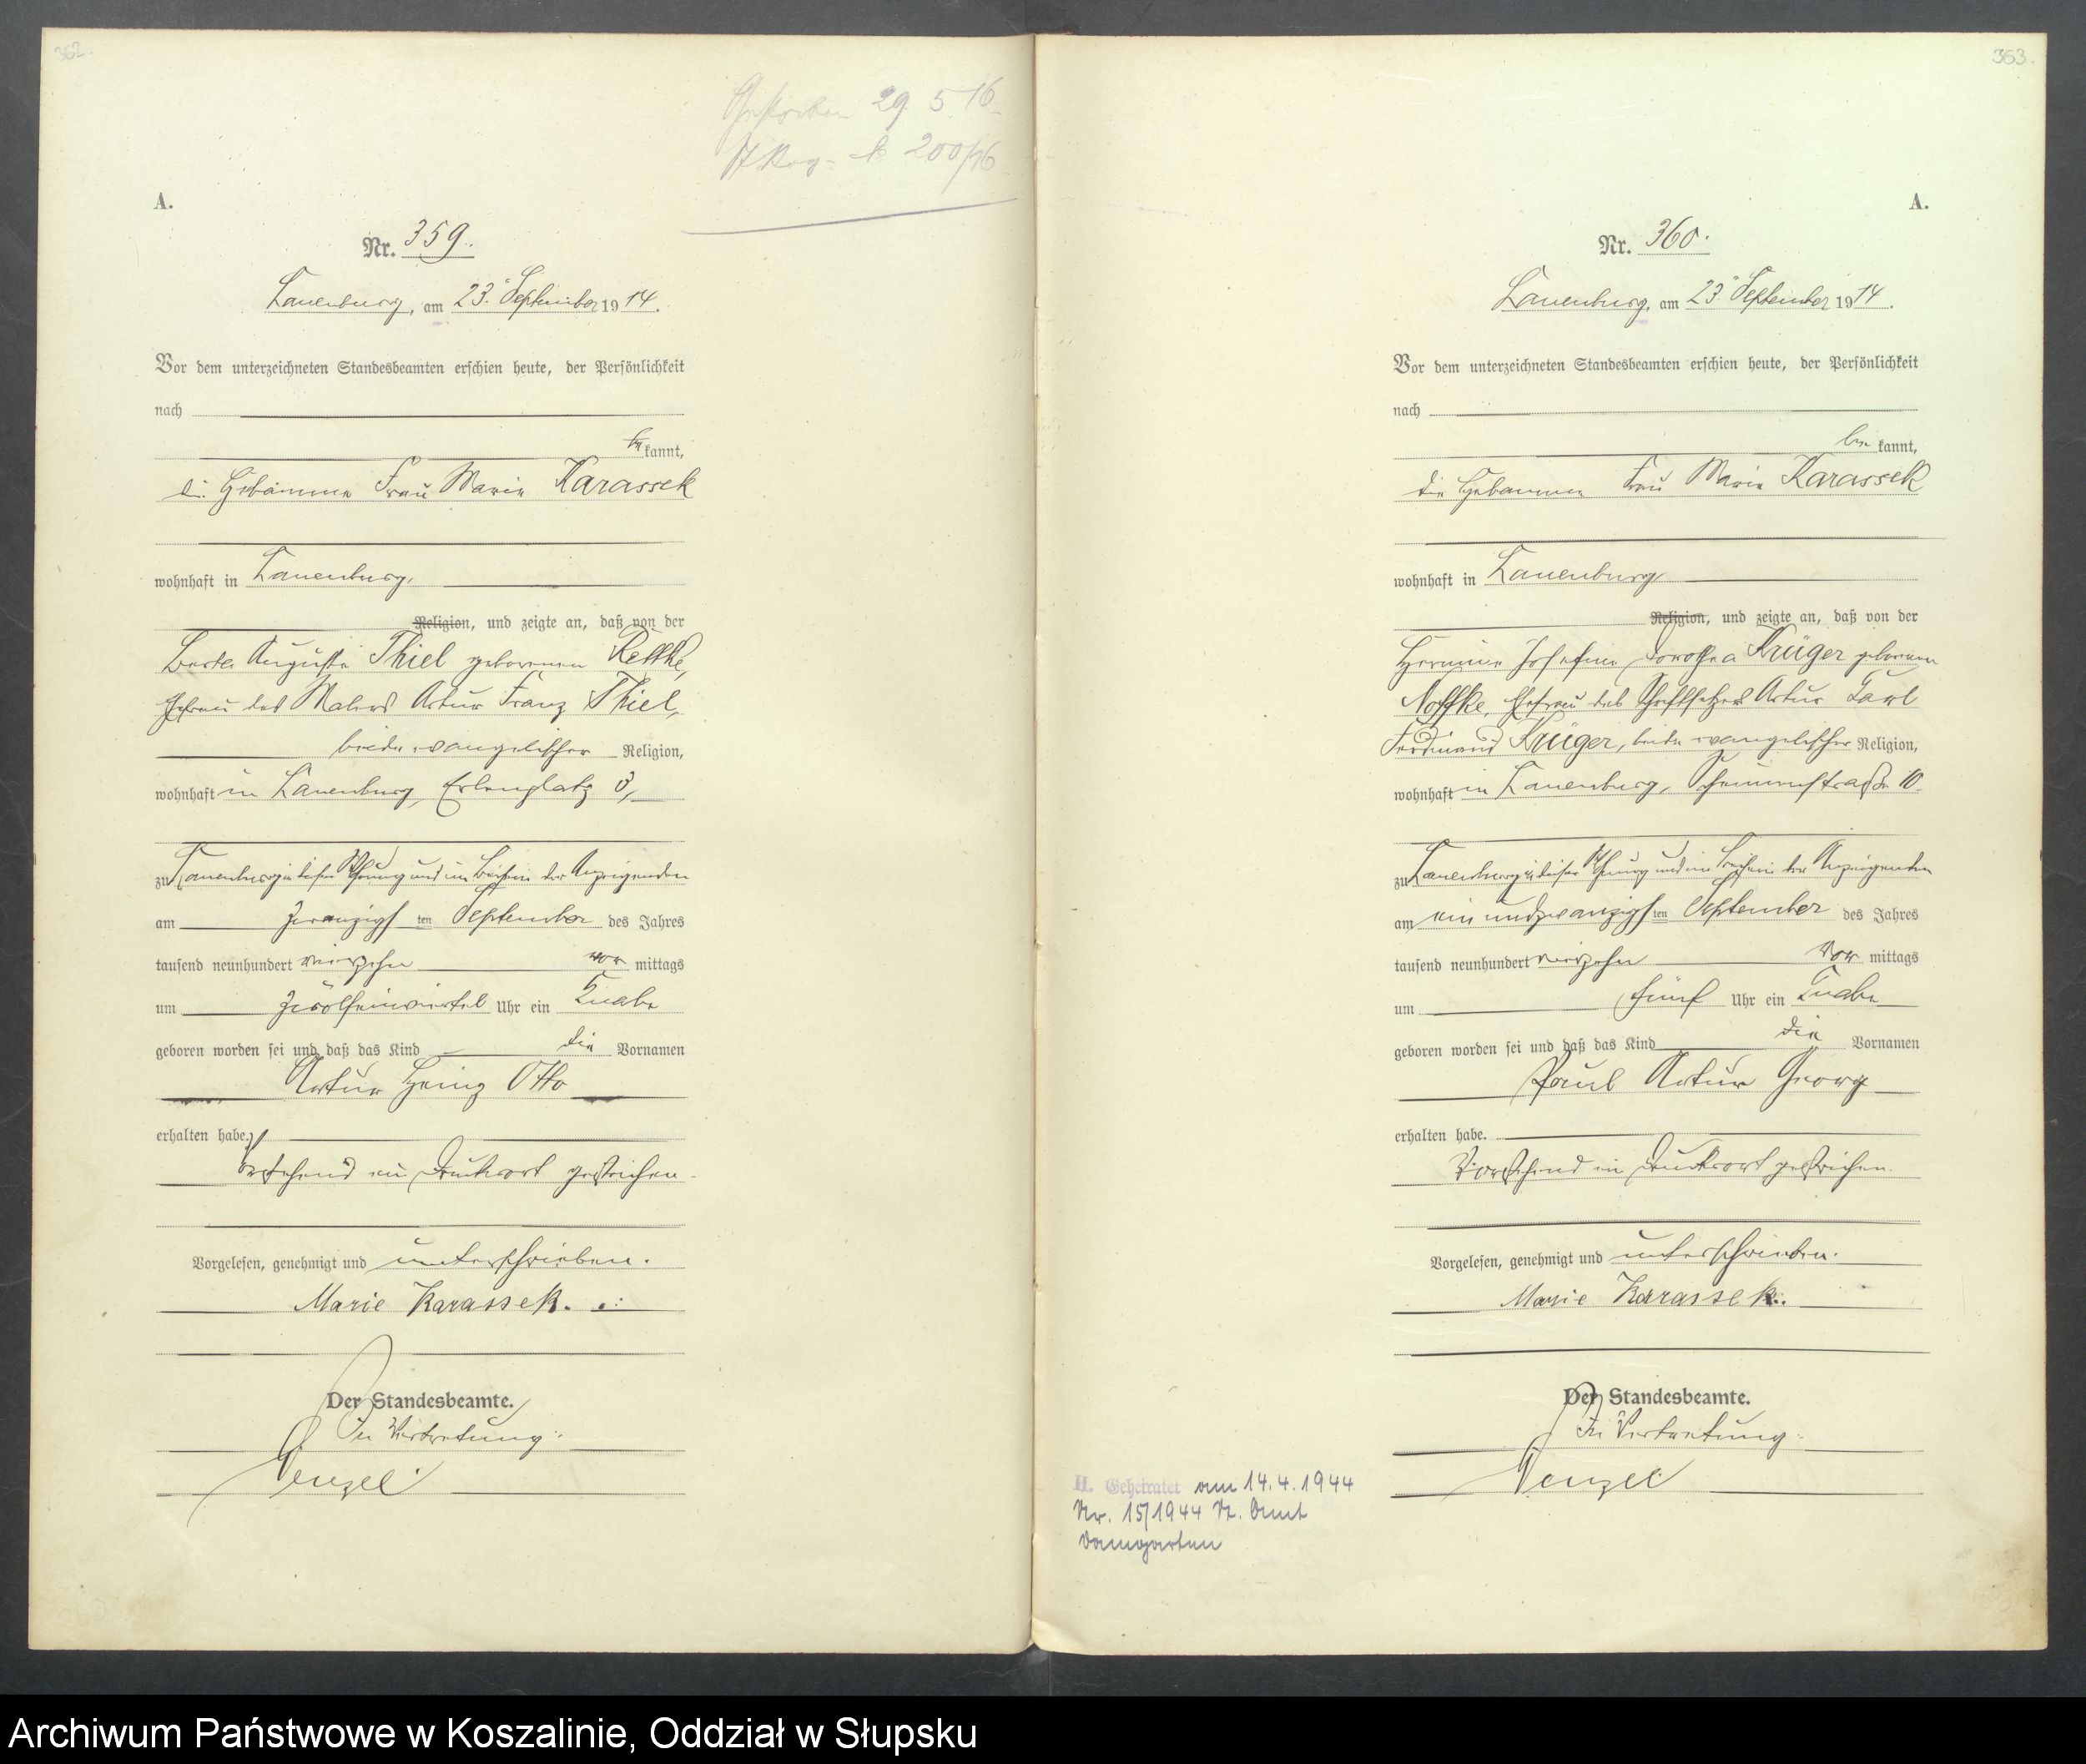 362.
Gestorben 29. 5. 16.
200/16
A.
Nr. 359.
Lauenburg, am 23. September 1914.
Vor dem unterzeichneten Standesbeamten erschien heute, der Persönlichkeit
nach
be kannt,
die Hebamme Frau Marie Karassek
wohnhaft in Lauenburg,
Religion, und zeigte an, daß von der
Berta Auguste Thiel geborenen Rettke,
Ehefrau des Malers Artur Franz Thiel,
beide evangelischer Religion,
wohnhaft in Lauenburg, Erlenplatz 3,
zu Lauenburg in dieser Wohnung und im Beisein der Anzeigenden
am zwanzigsten September des Jahres
tausend neunhundert vierzehn vor mittags
um zwölfeinviertel Uhr ein Knabe
geboren worden sei und daß das Kind die Vornamen
Artur Heinz Otto
erhalten habe.
Vorstehend ein Druckwort gestrichen.
Vorgelesen, genehmigt und unterschrieben.
Marie Karassek.
Der Standesbeamte.
In Vertretung:
Wenzel
363.
A.
Nr. 360.
Lauenburg, am 23. September 1914.
Vor dem unterzeichneten Standesbeamten erschien heute, der Persönlichkeit
nach
be kannt,
die Hebamme Frau Marie Karassek
wohnhaft in Lauenburg
Religion, und zeigte an, daß von der
Hermine Josefine Dorothea Krüger geborenen
Noffke, Ehefrau des Schriftsetzers Artur Carl
Ferdinand Krüger, beide evangelischer Religion,
wohnhaft in Lauenburg, 10.
zu Lauenburg in dieser Wohnung und im Beisein der Anzeigenden
am einundzwanzigsten September des Jahres
tausend neunhundert vierzehn vor mittags
um fünf Uhr ein Knabe
geboren worden sei und daß das Kind die Vornamen
Paul Artur Georg
erhalten habe.
Vorstehend ein Druckwort gestrichen.
Vorgelesen, genehmigt und unterschrieben.
Marie Karassek.
Der Standesbeamte.
In Vertretung:
Wenzel
II. Geheiratet am 14.4.1944
Nr. 15/1944 St. Amt
Damgarten
Archiwum Państwowe w Koszalinie, Oddział w Słupsku